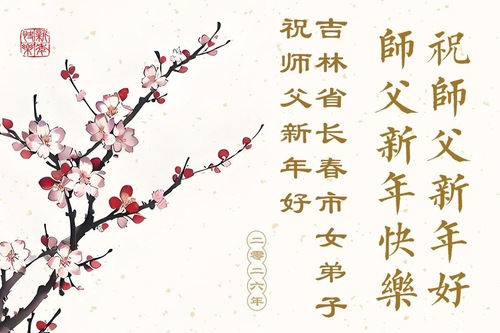 祝師父新年好
師父新年快樂
吉林省长春市女弟子
祝师父新年好
二零二六年
新年
快樂